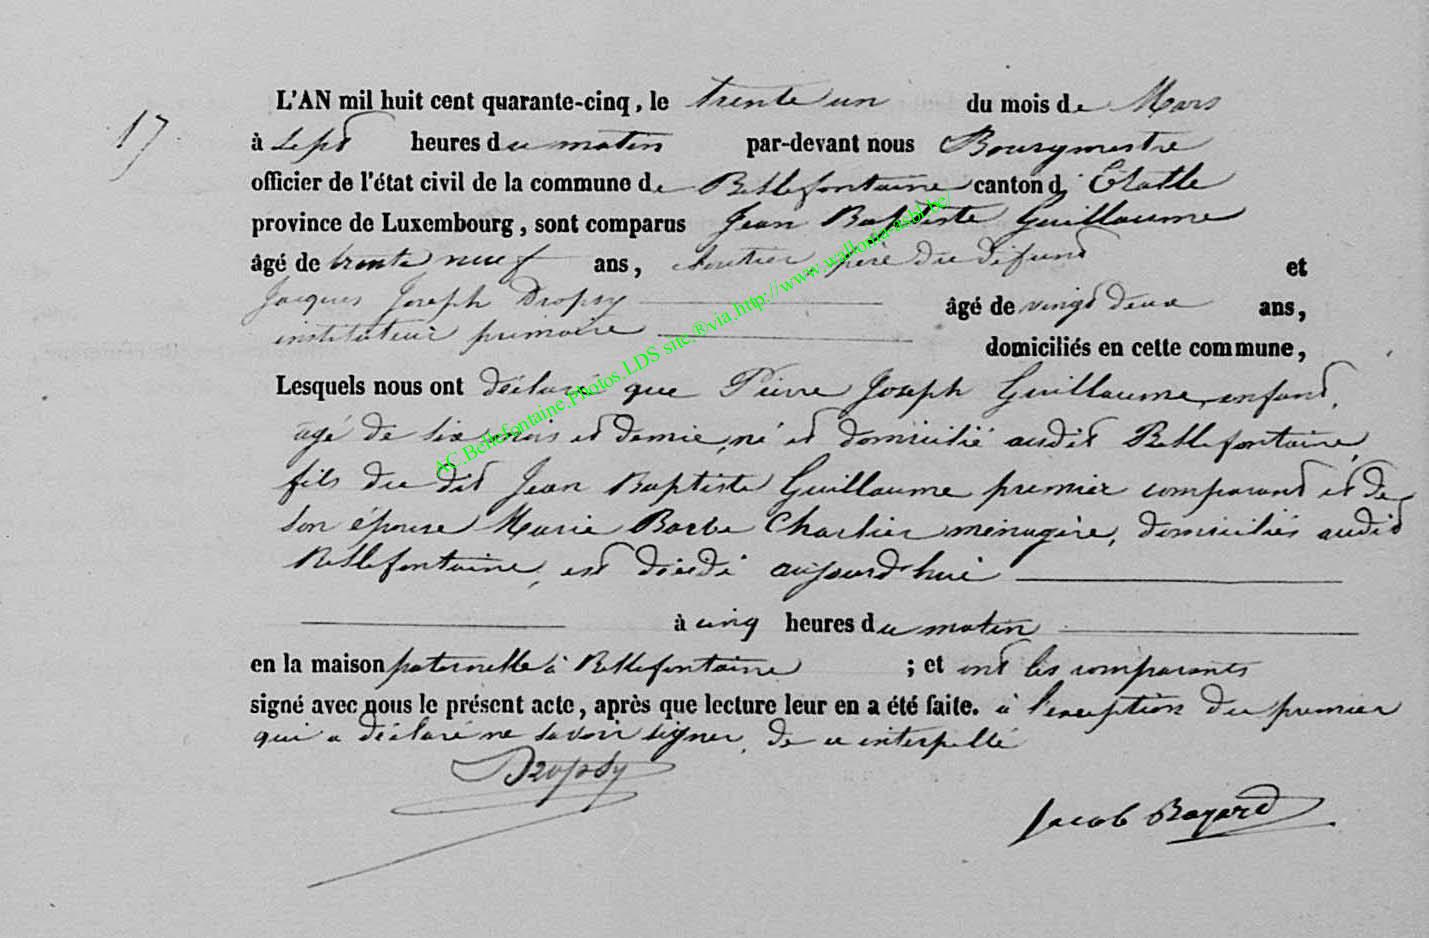 17
L'AN mil huit cent quarante-cinq, le trente un du mois de Mars
à Sept heures du matin par-devant nous Bourgmestre
officier de l'état civil de la commune de Bellefontaine canton d'Etalle
province de Luxembourg, sont comparus Jean Baptiste Guillaume
âgé de trente neuf ans, cloutier, père du défunt et
Jacques Joseph Dropsy âgé de vingt deux ans,
instituteur primaire domiciliés en cette commune,
Lesquels nous ont déclaré que Pierre Joseph Guillaume, enfant,
agé de six mois et demie, né et domicilié audit Bellefontaine,
fils du dit Jean Baptiste Guillaume premier comparant et de
son épouse Marie Barbe Charlier ménagère, domiciliés audit
Bellefontaine, est décédé aujourd'hui
à cinq heures du matin
en la maison paternelle à Bellefontaine ; et ont les comparants
signé avec nous le présent acte, après que lecture leur en a été faite. à l'exception du premier
qui a déclaré ne savoir signer, de ce interpellé
Dropsy
Jacob Bayard
AC.Bellefontaine.Photos.LDS site.®via.http://www.wallonia-asbl.be/